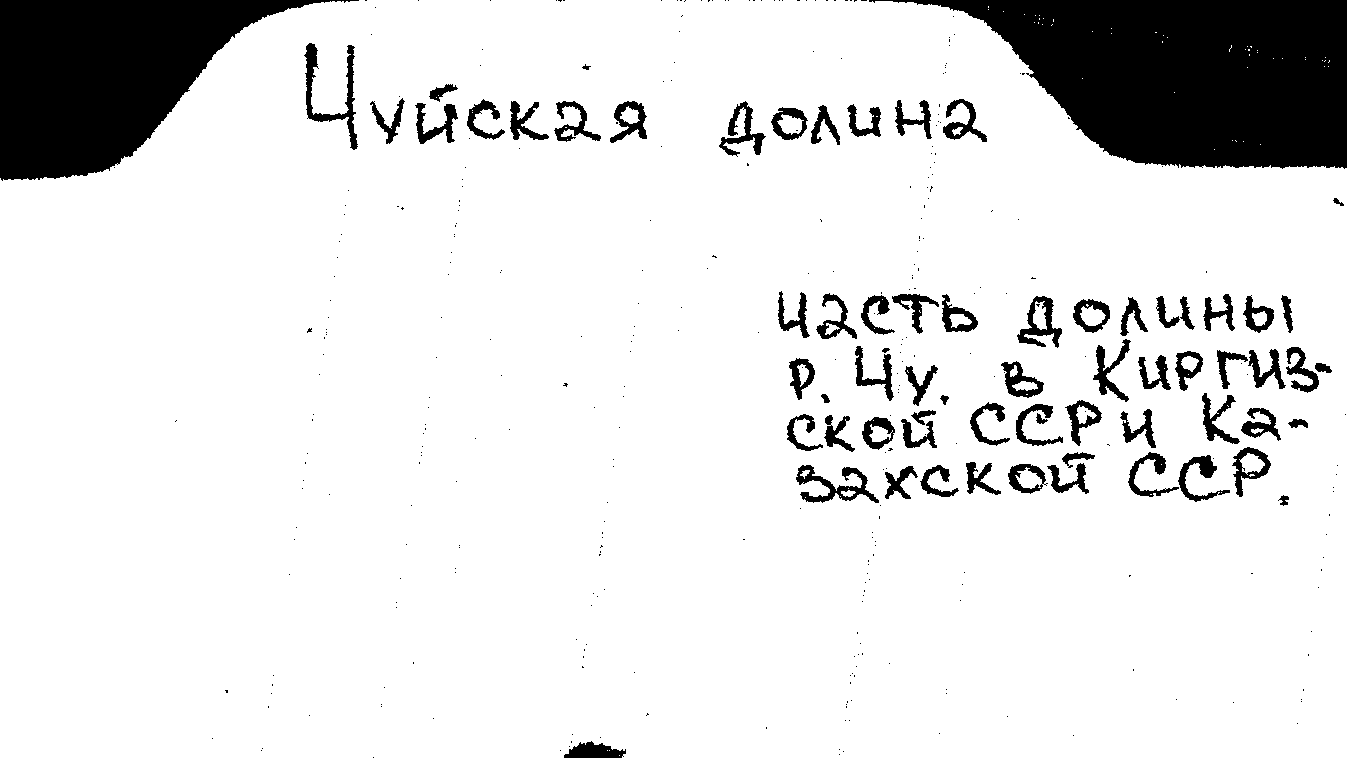 Чуйская долина
часть долины
р. Чу. в Киргиз-
ской ССР и Ка-
захской ССР.